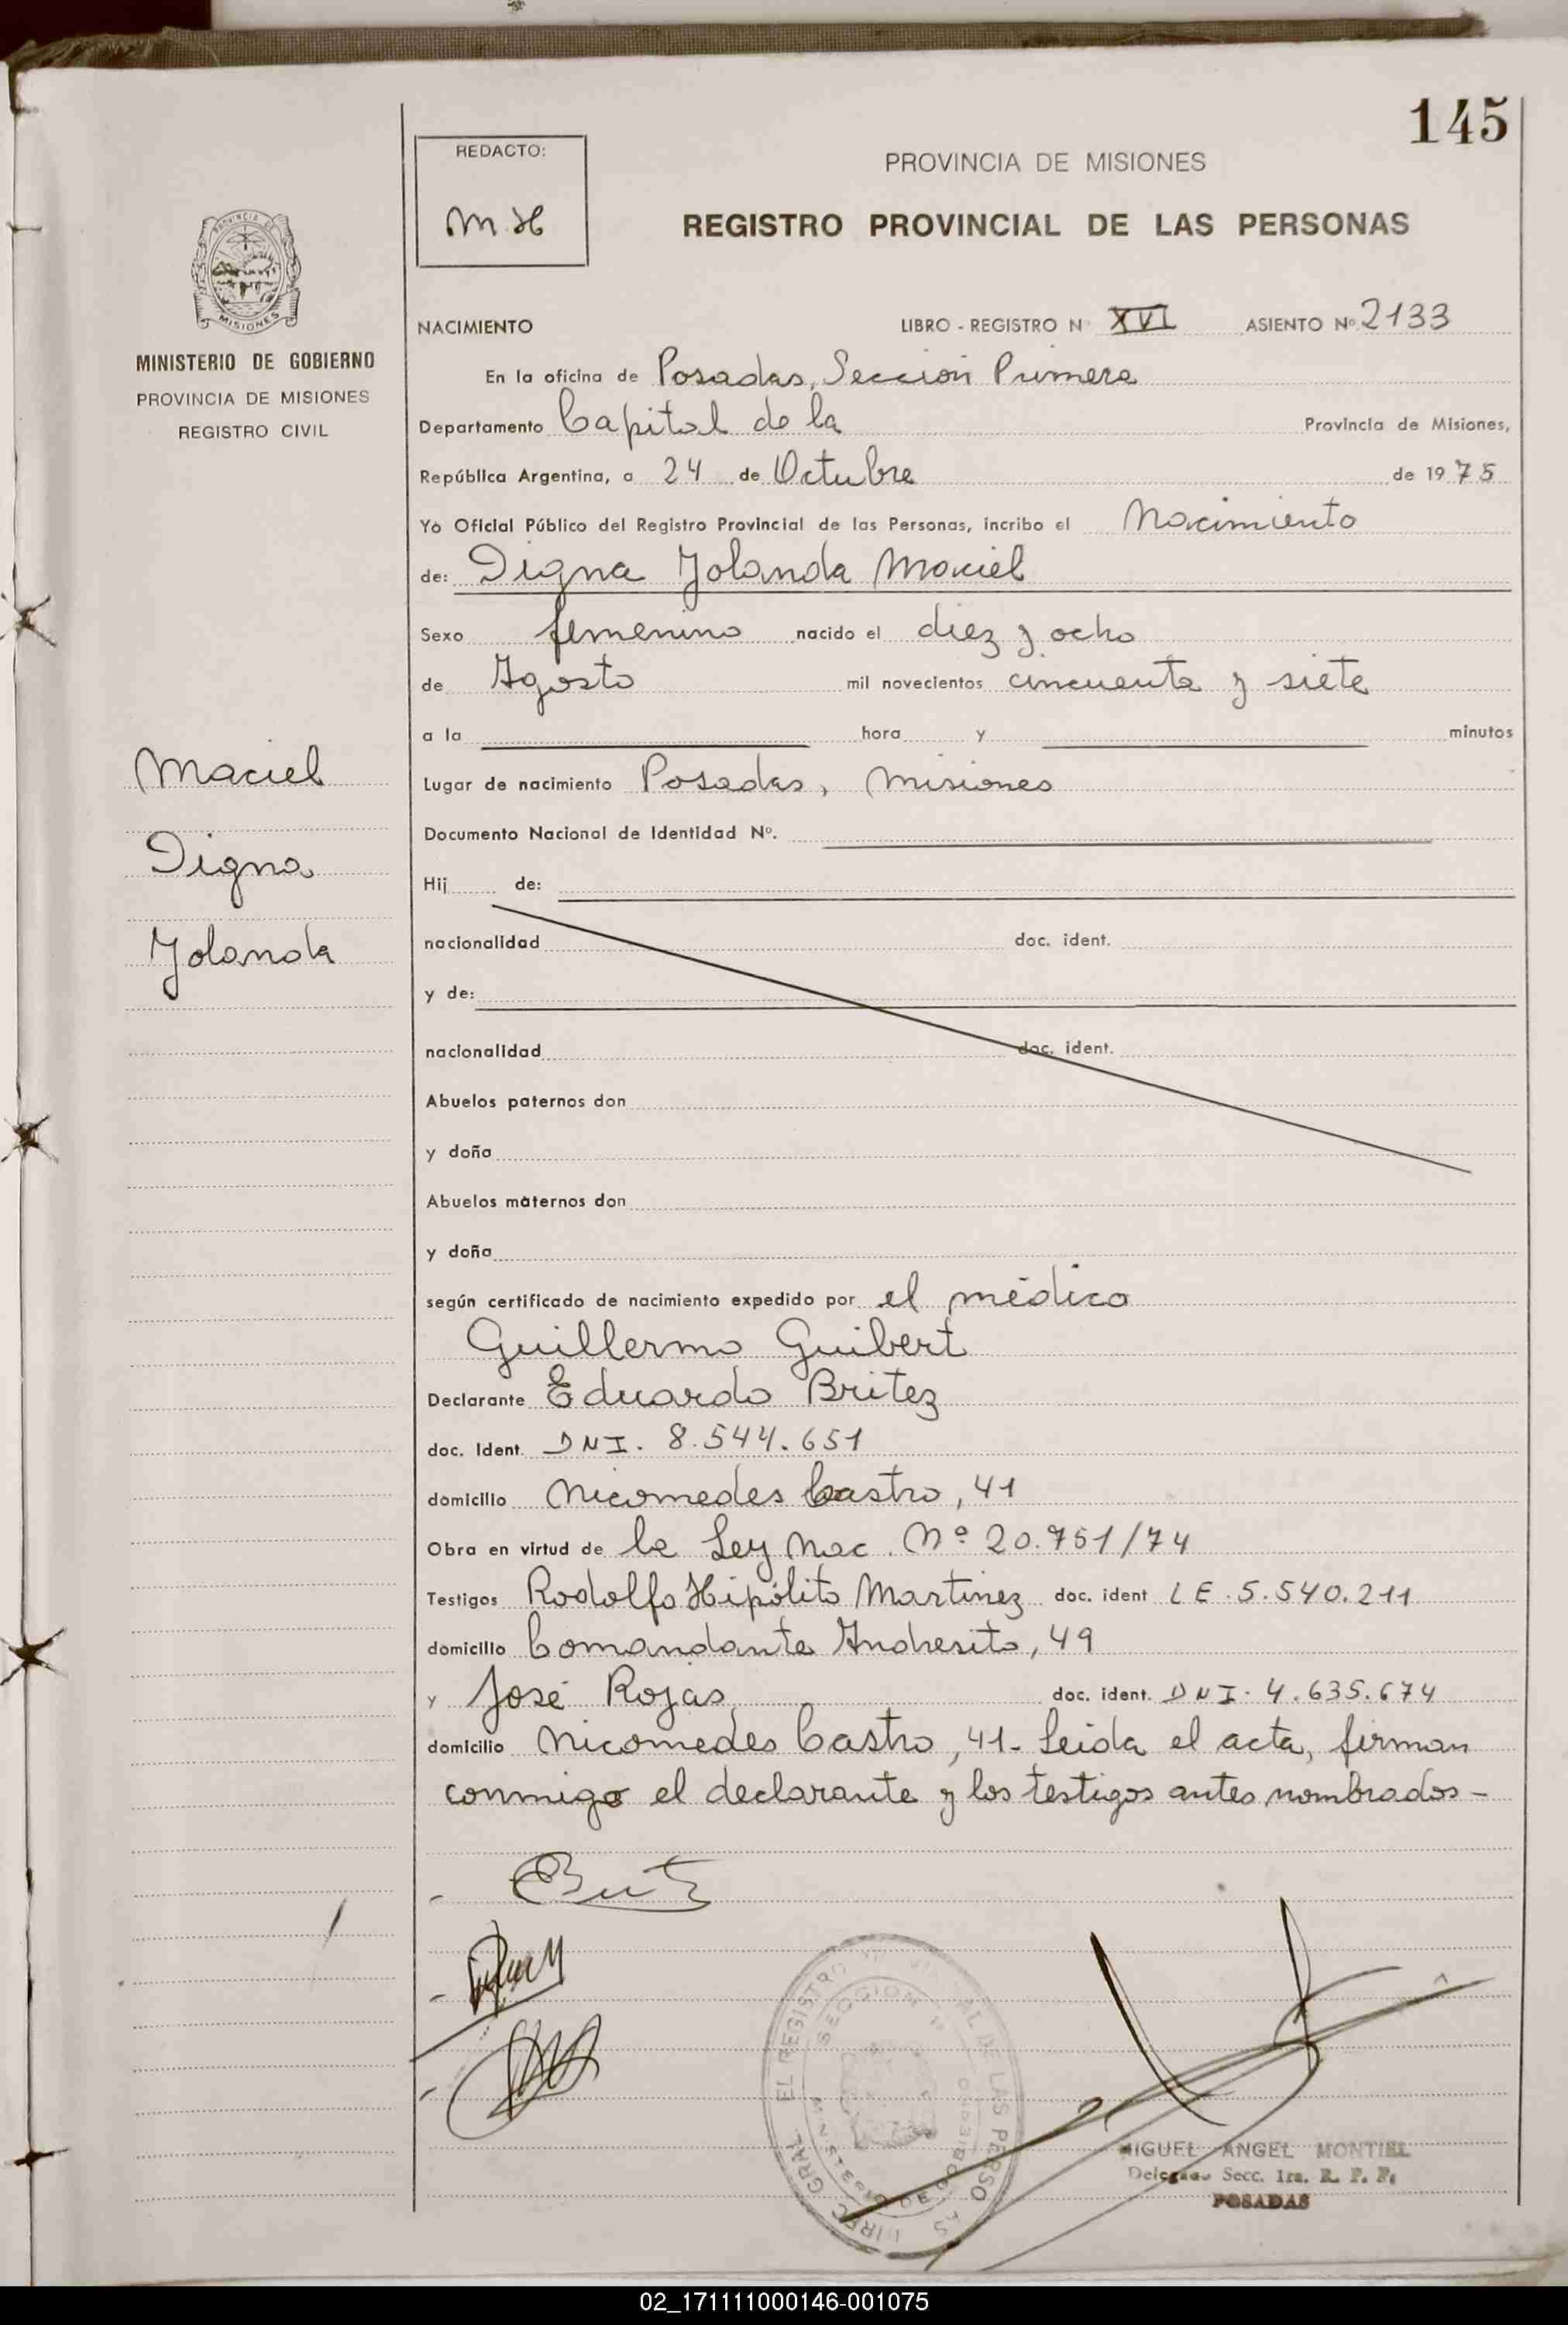 145
REDACTO:
M.H
PROVINCIA DE MISIONES
REGISTRO PROVINCIAL DE LAS PERSONAS
PROVINCIA DE
MISIONES
MINISTERIO DE GOBIERNO
PROVINCIA DE MISIONES
REGISTRO CIVIL
Maciel
Digna
Yolanda
NACIMIENTO LIBRO - REGISTRO N XVI ASIENTO Nº 2133
En la oficina de Posadas, Sección Primera
Departamento Capital de la Provincia de Misiones,
República Argentina, a 24 de Octubre de 1975
Yo Oficial Público del Registro Provincial de las Personas, incribo el Nacimiento
de: Digna Yolanda Maciel
Sexo femenino nacido el diez y ocho
de Agosto mil novecientos cincuenta y siete
a la hora y minutos
Lugar de nacimiento Posadas, Misiones
Documento Nacional de Identidad Nº.
Hij de:
nacionalidad doc. ident.
y de:
nacionalidad doc. ident.
Abuelos paternos don
y doña
Abuelos maternos don
y doña
según certificado de nacimiento expedido por el médico
Guillermo Guibert
Declarante Eduardo Britez
doc. Ident. DNI. 8.544.651
domicilio Nicomedes Castro, 41
Obra en virtud de la Ley Nac. Nº 20.751/74
Testigos Rodolfo Hipólito Martinez doc. ident LE. 5.540.211
domicilio Comandante Andresito, 49
y José Rojas doc. ident. DNI. 4.635.674
domicilio Nicomedes Castro, 41- Leida el acta, firman
conmigo el declarante y los testigos antes nombrados-
MIGUEL ANGEL MONTIEL
Delegado Secc. 1ra. R. P. P.
POSADAS
02_171111000146-001075